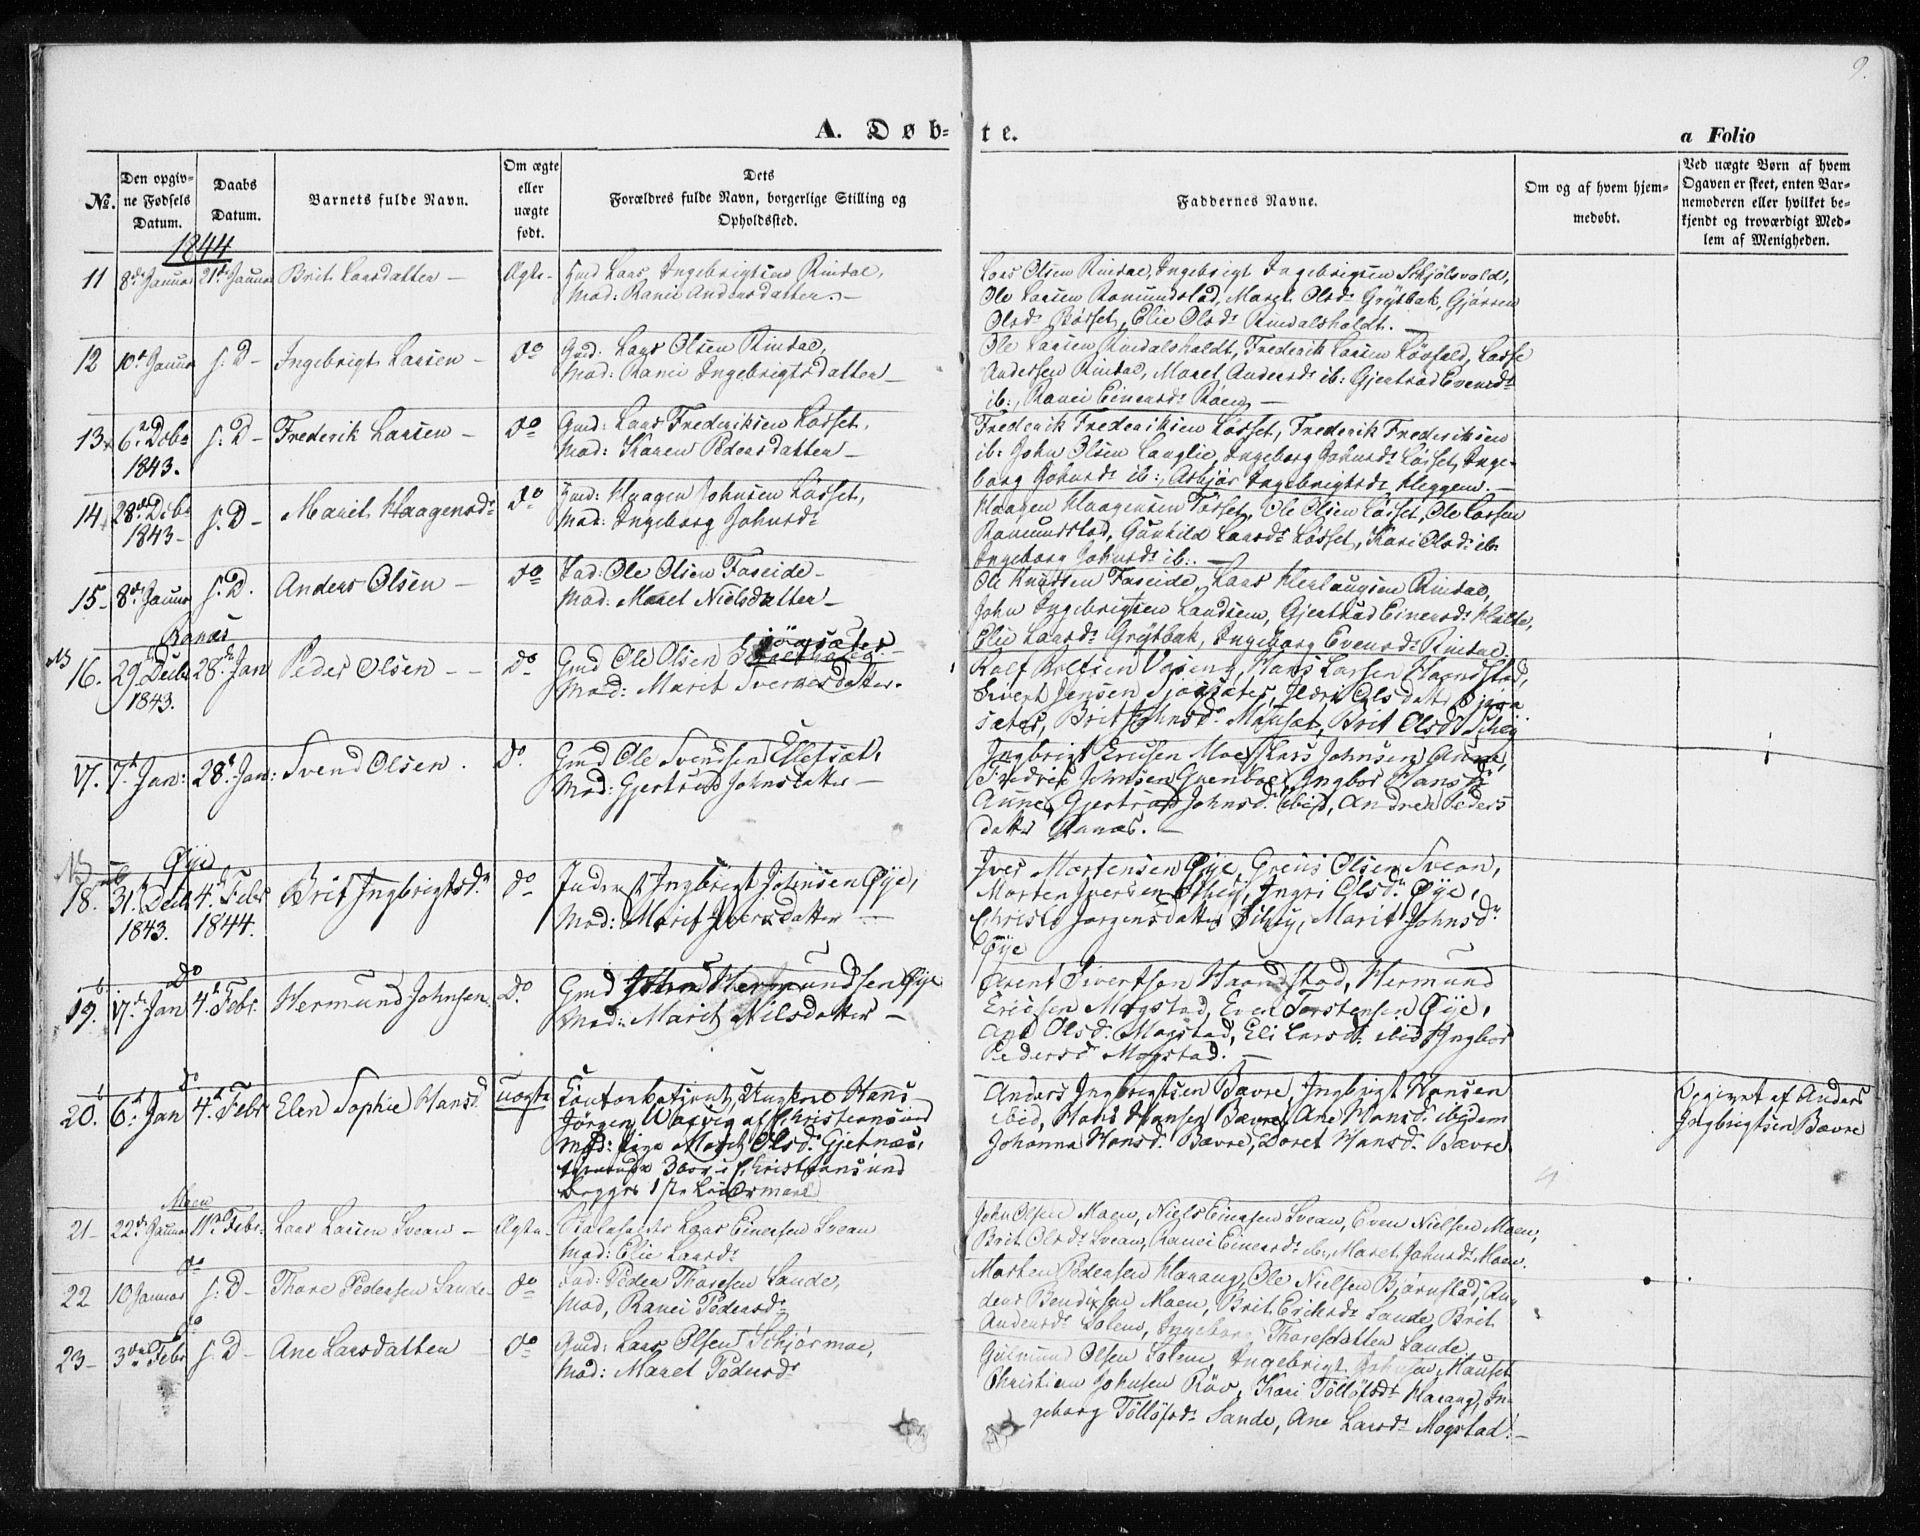 9.
A. Døb-
te.
a Folio
No.
Den opgiv-
ne Fødsels
Datum.
Daabs
Datum.
Barnets fulde Navn.
Om ægte
eller
uægte
født.
Dets
Forældres fulde Navn, borgerlige Stilling og
Opholdssted.
Faddernes Navne.
Om og af hvem hjem-
medøbt.
Ved uægte Børn af hvem
Opgaven er skeet, enten Bar-
nemoderen eller hvilket be-
kjendt og troværdigt Med-
lem af Menigheden.
1844
11 8de Januar 21de Januar Brit Larsdatter – Ægte – Gmd Lars Ingebrigtsen Rindal,
Mod: Ranei Andersdatter. –
Lars Olsen Rindal, Ingebrigt Ingebrigtsen Skjølsvold,
Ole Larsen Romundstad, Maret Olsdr Grytbak, Gjøren
Olsdr Bøsset, Elie Olsdr Rindalsholdt. –
12 10de Januar s. D – Ingebrigt Larsen – do Gmd: Lars Olsen Rindal,
Mod: Ranei Ingebrigtsdatter –
Ole Larsen Rindalsholdt, Frederik Larsen Løsfald, Lasse
Andersen Rindal, Maret Andersdr ib: Gjertrud Evensdr
ib:, Ranei Einersdr Røen –
13 6te Debr s. D – Frederik Larsen – do Gmd: Lars Frederiksen Løsset,
1843. Mod: Karen Pedersdatter –
Frederik Frederiksen Løsset, Frederik Frederiksen
ib: John Olsen Langlie, Ingeborg Johnsdr Løsset, Inge-
borg Johnsdr ib:, Asbjør Ingebrigtsdr Heggem. –
14 28de Debr s. D – Marit Haagensdr do Gmd: Haagen Johnsen Løsset,
1843 – Mod: Ingeborg Johnsdr
Haagen Haagensen Løsset, Ole Olsen Løsset, Ole Larsen
Romundstad, Gunhild Larsdr Løsset, Kari Olsdr ib
Ingeborg Johnsdr ib:. –
15 – 8de Januar s. D. Anders Olsen – do Ole Olsen Faseide –
Mod: Maret Nielsdatter –
Ole Knudsen Faseide, Lars Herlaugsen Rindal,
John Ingebrigtsen Landsem, Gjertrud Einersdr Holte,
Elie Larsdr Grytbak, Ingeborg Evensdr Rindal.
Ranæs
16. 29 Decbr 28de Jan Peder Olsen – – do Gmd Ole Olsen
1843. Mod: Marit Sversdatter.
Rolf Rolfsen Vaseng, Hans Larsen Haandstad,
Sivert Jensen Sjøgsæter, Ildri Olsdatter Sjøgs
sæter, Brit Johnsdr Mauset, Brit Olsdr
17. 7de Jan: 28de Jan: Svend Olsen. do Gmd Ole Svendsen Elletsæt,
Mod: Gjertrud Johnsdatter –
Ingbrigt Ericsen Moe, Lars Johnsen Aune,
Fredric Johnsen Grønboe, Ingbor Hansdr
Aune, Gjertrud Johnsdr ibid, Andrea Peders
datter Ranæs. –
NB Øye
18. 31te Decb 4de Febr Brit Ingbrigtsdr do Inderst Ingbrigt Johnsen Øye,
1843. 1844. Mod: Marit Iversdatter –
Iver Mortensen Øye, Olsen Sveen,
Morten Iversen, Ingri Olsdr Øye,
Jørgensdatter, Marit Johnsdr
Øye
do
19. 17de Jan 4de Febr. Hermund Johnsen do Gmd John Hermundsen Øye
Mod: Marit Nilsdatter –
Arent Sivertsen Haandstad, Hermund
Ericsen Mogstad, Even Torstensen Øye,
Ane Olsdr Mogstad, Eli Larsdr ibid Ingbor
Pedersdr Mogstad. –
do.
20. 6te Jan 4de Febr Elen Sophie Hansd. uægte Hans
Jørgen af Christiansund
Mod: Pige Marit Olsdr Gjetnæs,
Christiansund
Begges 1ste
Anders Ingbrigtsen Bævre, Ingbrigt Hansen
ibid, Hans Hansen Bævre, Ane Hansdr ibidem
Johanna Hansdr Bævre, Doret Hansdr Bævre
Opgivet af Anders
Ingbrigtsen Bævre
Moen
21 – 22de Januar 11te Febr: Lars Larsen Svean – Ægte Lars Einersen Svean
Mod: Elie Larsdr
John Olsen Moen, Niels Einersen Svean, Even Nielsen Moen,
Brit Olsdr Svean, Ranei Einersdr ib:, Maret Johnsdr Moen.
do
22 10 Januar s. D – Thore Pedersen Sande – do Peder Thoresen Sande,
Mod, Ranei Pedersdr
Morten Pedersen Harang, Ole Nielsen Bjørnstad, An-
ders Bendixsen Moen, Brit Eriksdr Sande, Brit
Andersdr Solem, Ingeborg Thoresdatter Sande
do
23 – 3die Febr s. D – Ane Larsdatter do Gmd: Lars Olsen Skjørmoe,
Mod: Maret Pedersdr
Gulmund Olsen Solem, Ingebrigt Johnsen Mauset
Christian Johnsen Røv, Kari Tølløfsdr Harang, In-
geborg Tølløfsdr Sande, Ane Larsdr Mogstad. –